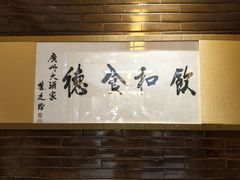 飲和食德
廣州大酒家